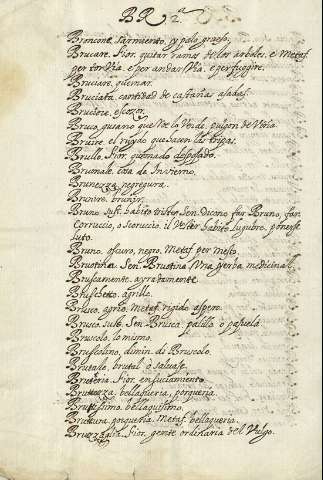 BR 2.ª
Broncone, sarmiento, y palo grueso.
Brucare, Fior. quitar ramas de los arboles. e Metaf.
per tor Via. e per andar Via. e per fuggire.
Bruciare, quemar.
Bruciata, cantidad de castañas asadas.
Bruciore, escozor.
Bruco, gusano que Roe la Verde,
Bruire, el ruydo que hacen las tripas.
Brullo, Fior. quemado despojado.
Brumale, cosa de Invierno.
Brunezza, negregura.
Brunire, brunir.
Bruno, sust. habito triste, Sen. Dicono far Bruno, far
Corruccio, o Scoruccio, il Vestir habito lugubre, ponerse
luto.
Bruno, oscuro, negro. Metaf. per mesto.
Brustina, Sen. Brustina, Una yerba medicinal.
Bruscamente, ayratamente.
Bruschetto, agrillo.
Brusco, agrio, metaf. rigido aspero.
Brusco, sust. Sen. Brusca, palillo o pajuela.
Bruscolo, lo mismo.
Bruscolino, dimin. di Bruscolo.
Brutale, brutal o salvaje.
Brutteria, Fior. ensuciamiento.
Bruttezza, bellaqueria, porqueria.
Bruttissimo, bellaquissimo.
Bruttura, porqueria, metaf. bellaqueria.
Bruzzaglia, Fior. gente ordinaria del Vulgo.